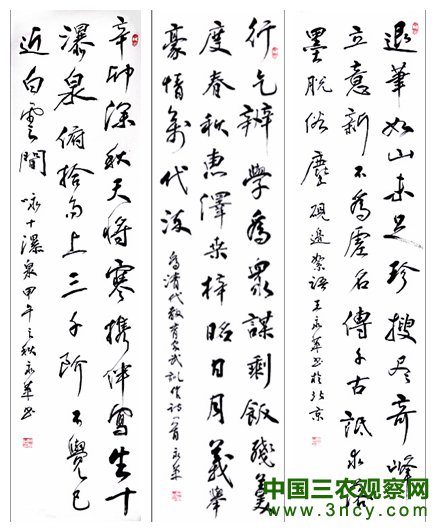 退筆如山未足珍搜尽奇峰
立意新不為虛名傳千古祇求翰
墨脱俗塵 硯邊絮語 王永 書於北京
行乞辦學為眾謀剩飯殘羹
度春秋惠澤桑梓昭日月義舉
豪情萬代流 為清代教育家武訓作詩一首永
辛卯深秋天將寒携伴寫生十
瀑泉俯拾而上三千階不覺已
近白雲間 詠十瀑泉甲午之秋永 書
中国三农观察网
www.3ncn.com